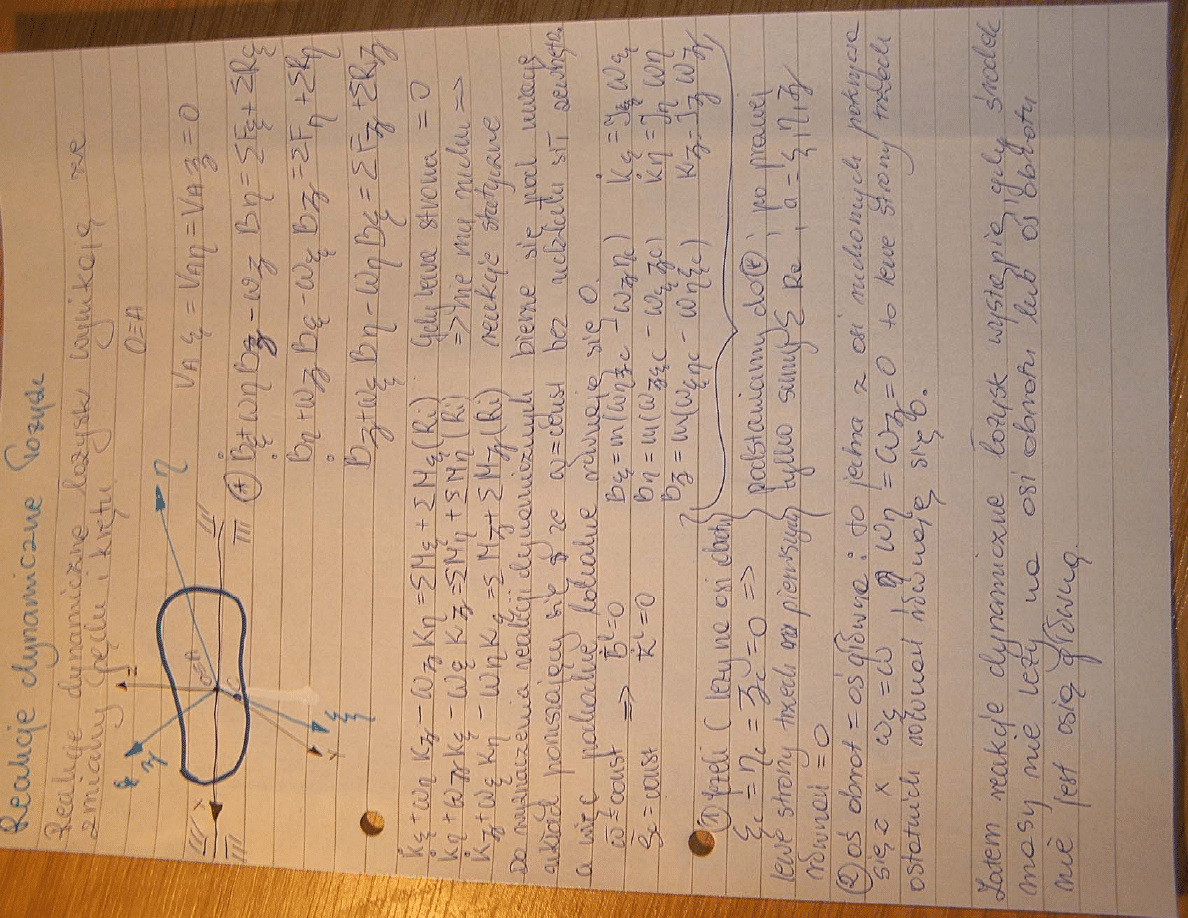 Reakcje dynamiczne łożysk
Reakcje dynamiczne łożysk wynikają ze
zmiany pędu i krętu
O≡A
V_Aξ = V_Aη = V_Aʒ = 0
(*) Ḃξ + ωη Bʒ - ωʒ Bη = ΣFξ + ΣRξ
Ḃη + ωʒ Bξ - ωξ Bʒ = ΣFη + ΣRη
Ḃʒ + ωξ Bη - ωη Bξ = ΣFʒ + ΣRʒ
z
ʒ
η
O≡A
C
x
ξ
K̇ξ + ωη Kʒ - ωʒ Kη = ΣMξ + ΣMξ(Ri)
K̇η + ωʒ Kξ - ωξ Kʒ = ΣMη + ΣMη(Ri)
K̇ʒ + ωξ Kη - ωη Kξ = ΣMʒ + ΣMʒ(Ri)
Gdy lewa strona = 0
=> nie ma ruchu =>
reakcje statyczne
Do wyznaczenia reakcji dynamicznych bierze się pod uwagę
układ poruszający się z ω = const bez udziału sił zewnętrz.
a więc pochodne lokalne równają się 0.
ω̄ = const => B̄' = 0
ρc = const K̄' = 0
Bξ = m(ωη ʒc - ωʒ ηc) Kξ = Jξ ωξ
Bη = m(ωʒ ξc - ωξ ʒc) Kη = Jη ωη
Bʒ = m(ωξ ηc - ωη ξc) Kʒ = Jʒ ωʒ
(1) Jeżeli C leży na osi obrotu
ξc = ηc = ʒc = 0 =>
lewe strony trzech pierwszych
równań = 0
podstawiamy do (*) i po prawej
tylko sumy Σ Ra ; a = ξ, η, ʒ
(2) oś obrot = oś główna ; to jedna z osi ruchomych pokrywa
się z x ωξ = ω ωη = ωʒ = 0 to lewe strony trzech
ostatnich równań równają się 0.
Zatem reakcje dynamiczne łożysk wystąpią gdy środek
masy nie leży na osi obrotu lub oś obrotu
nie jest osią główną.